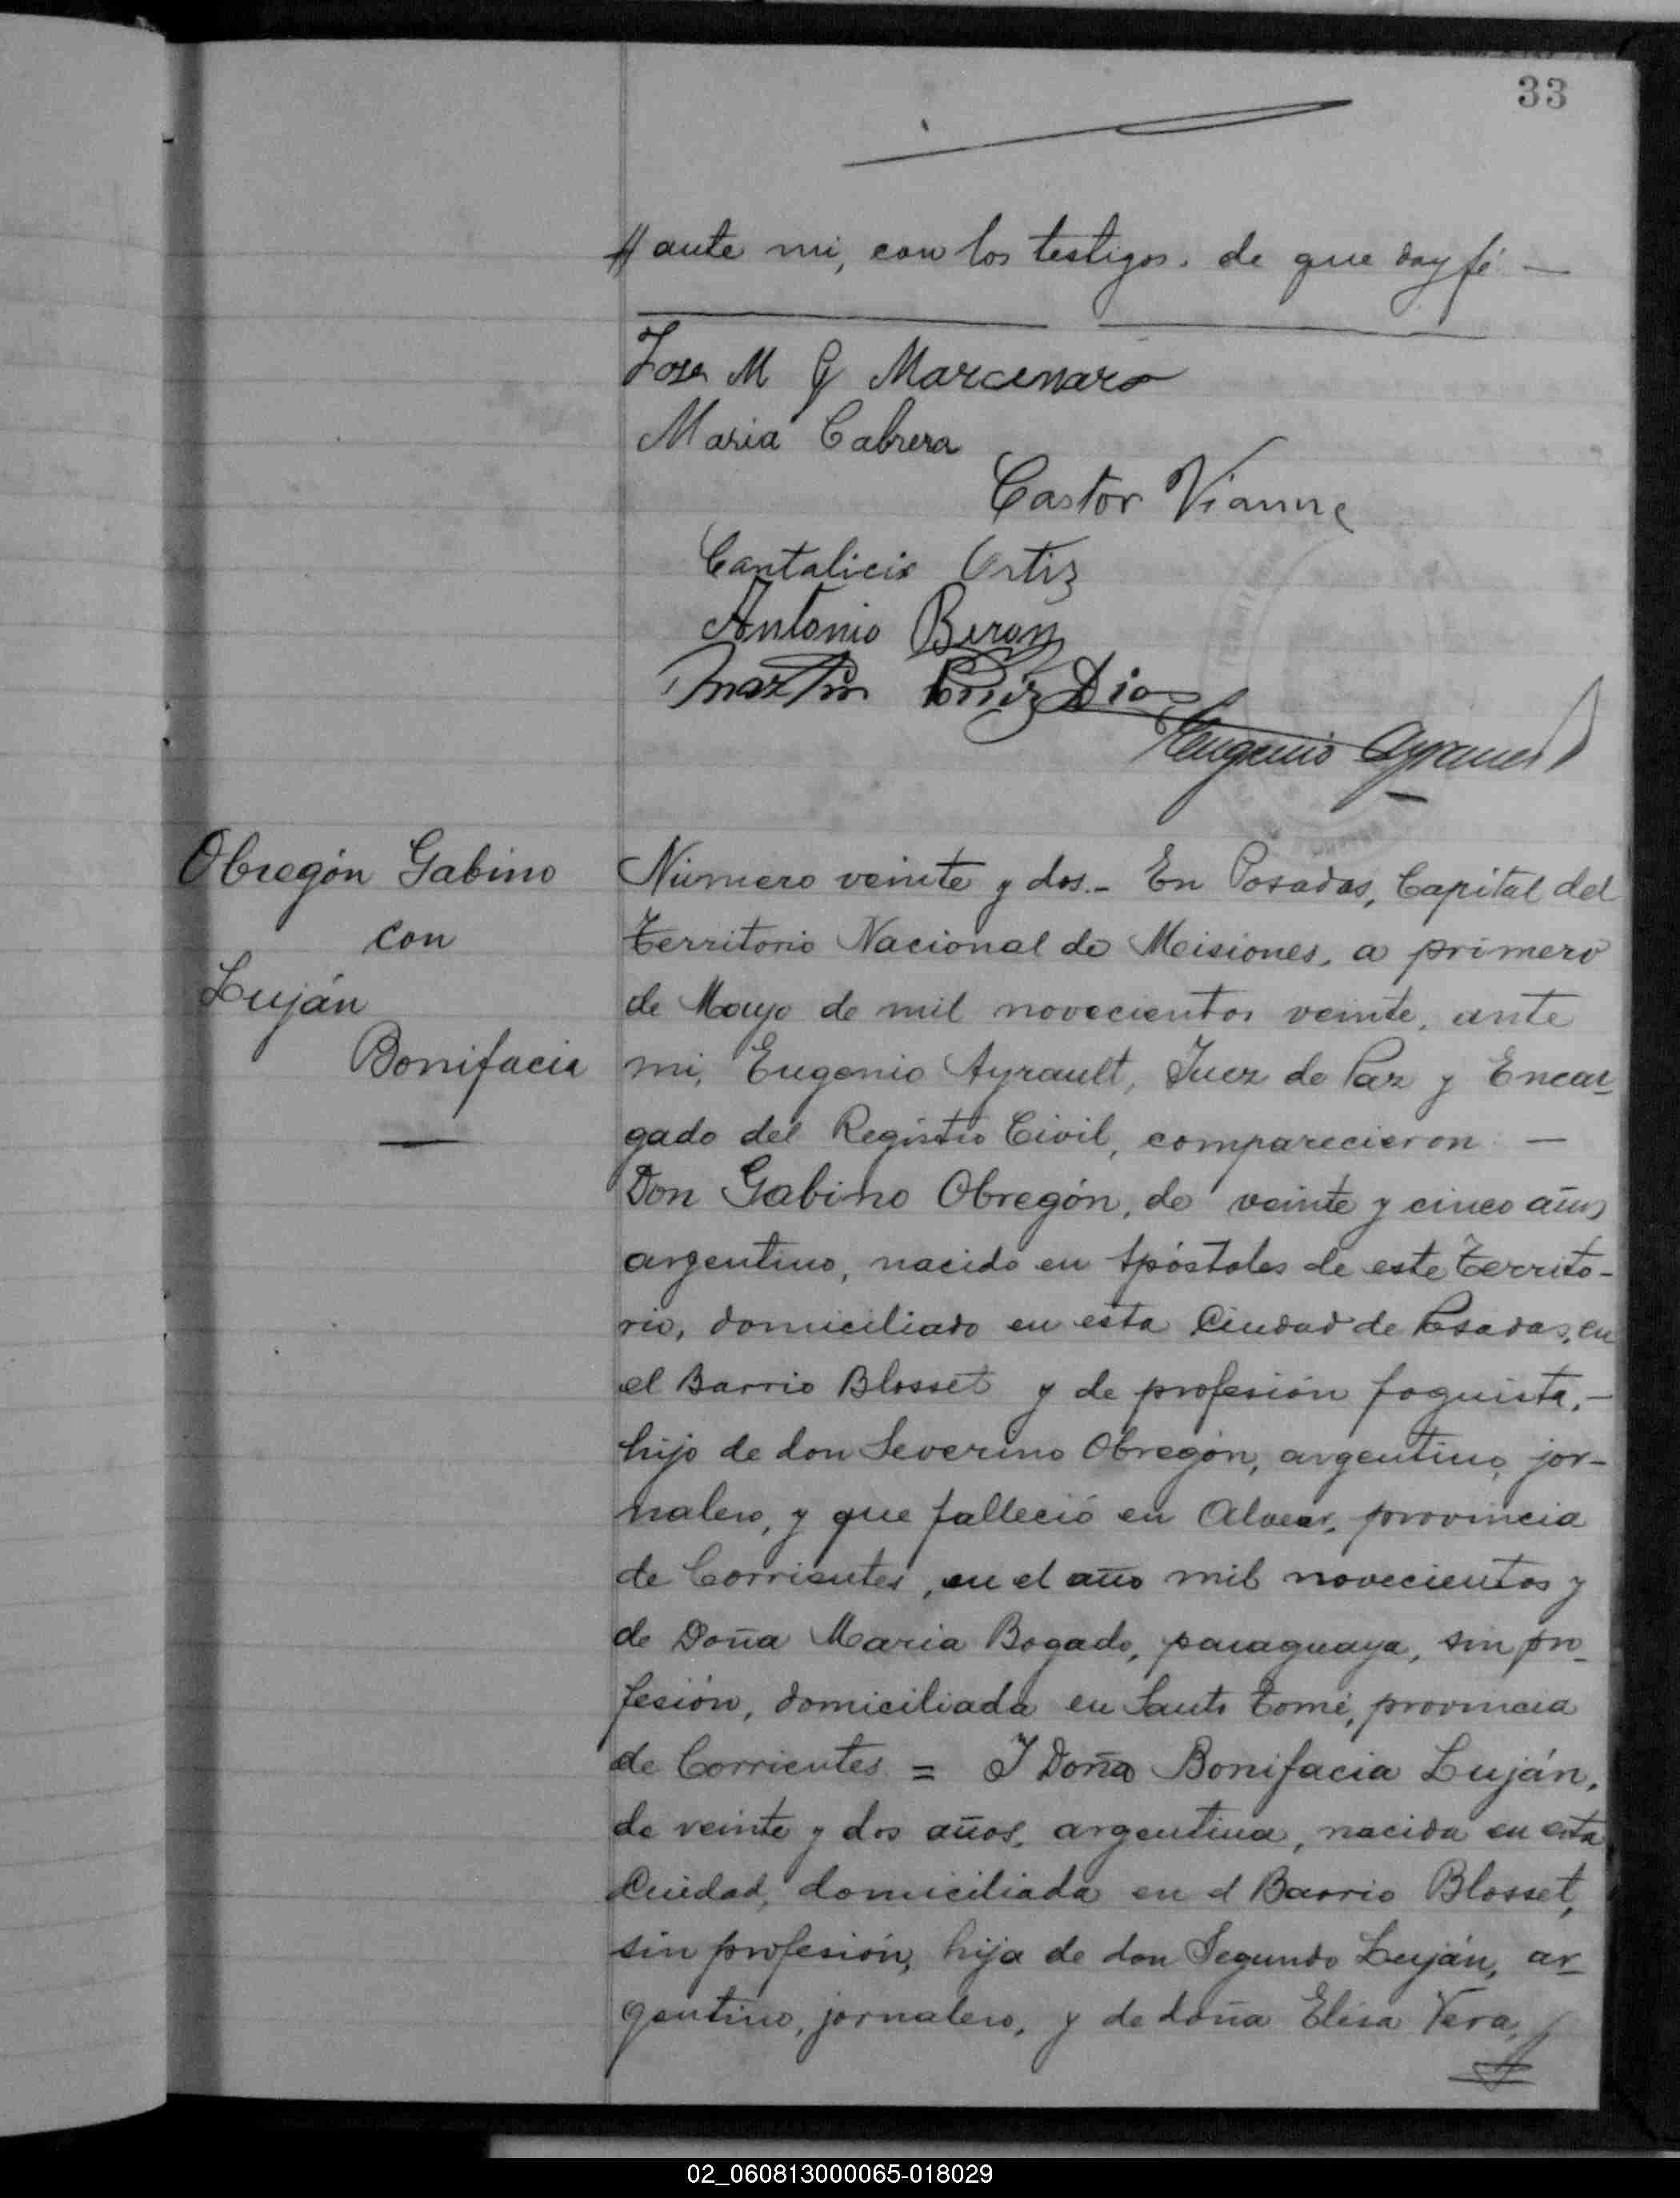 33
// ante mi, con los testigos. de que doy fé —
Jose M G Marcenaro
Maria Cabrera
Castor Vianne
Cantalicio Ortiz
Antonio Beron
Martin Diaz
Eugenio Ayrault
Obregón Gabino
con
Luján
Bonifacia
Número veinte y dos.- En Posadas, Capital del
Territorio Nacional de Misiones, a primero
de Mayo de mil novecientos veinte, ante
mi, Eugenio Ayrault, Juez de Paz y Encar-
gado del Registro Civil, comparecieron: —
Don Gabino Obregón, de veinte y cinco años
argentino, nacido en Apóstoles de este Territo-
rio, domiciliado en esta Ciudad de Posadas, en
el Barrio Blosset y de profesión foguista, —
hijo de don Severino Obregón, argentino, jor-
nalero, y que falleció en Alvear, provincia
de Corrientes, en el año mil novecientos y
de Doña Maria Bogado, paraguaya, sin pro-
fesión, domiciliada en Santo Tomé, provincia
de Corrientes = Y Doña Bonifacia Luján,
de veinte y dos años, argentina, nacida en esta
Ciudad, domiciliada en el Barrio Blosset,
sin profesión, hija de don Segundo Luján, ar-
gentino, jornalero, y de doña Elisa Vera,
02_060813000065-018029